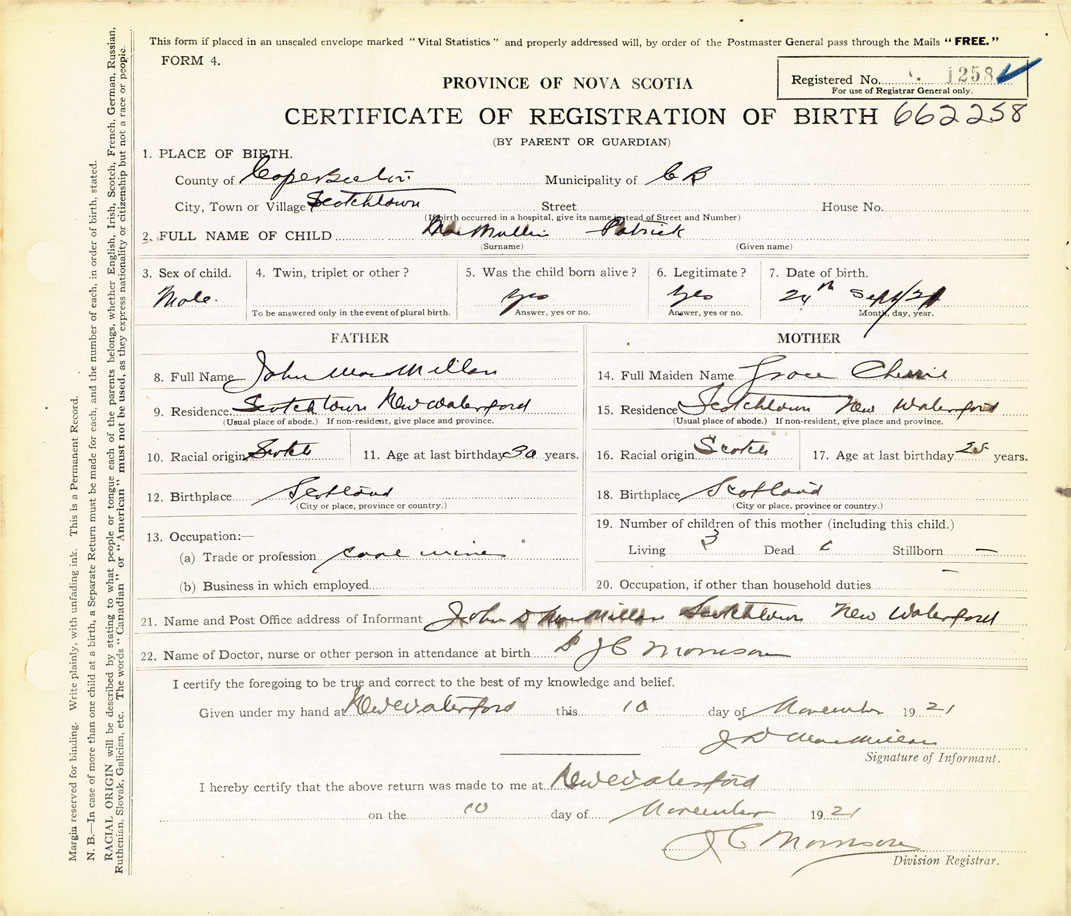 This form if placed in an unsealed envelope marked "Vital Statistics" and properly addressed will, by order of the Postmaster General pass through the Mails "FREE."
FORM 4.
Registered No. 1258
For use of Registrar General only.
PROVINCE OF NOVA SCOTIA
CERTIFICATE OF REGISTRATION OF BIRTH 662258
(BY PARENT OR GUARDIAN)
1. PLACE OF BIRTH.
County of Cape Breton Municipality of C B
City, Town or Village Scotchtown Street House No.
(If birth occurred in a hospital, give its name instead of Street and Number)
2. FULL NAME OF CHILD MacMullin Patrick
(Surname) (Given name)
3. Sex of child. 4. Twin, triplet or other? 5. Was the child born alive? 6. Legitimate? 7. Date of birth.
Male. yes yes 24th Sept/21
To be answered only in the event of plural birth. Answer, yes or no. Answer, yes or no. Month, day, year.
FATHER
8. Full Name John MacMillan
9. Residence Scotchtown New Waterford
(Usual place of abode.) If non-resident, give place and province.
10. Racial origin Scotch 11. Age at last birthday 30 years.
12. Birthplace Scotland
(City or place, province or country.)
13. Occupation:—
(a) Trade or profession coal miner
(b) Business in which employed
MOTHER
14. Full Maiden Name Grace
15. Residence Scotchtown New Waterford
(Usual place of abode.) If non-resident, give place and province.
16. Racial origin Scotch 17. Age at last birthday years.
18. Birthplace Scotland
(City or place, province or country.)
19. Number of children of this mother (including this child.)
Living 3 Dead Stillborn —
20. Occupation, if other than household duties —
21. Name and Post Office address of Informant John D MacMillan Scotchtown New Waterford
22. Name of Doctor, nurse or other person in attendance at birth Dr J C Morrison
I certify the foregoing to be true and correct to the best of my knowledge and belief.
Given under my hand at New Waterford this 10 day of November 1921
J D MacMillan
Signature of Informant.
I hereby certify that the above return was made to me at New Waterford
on the 10 day of November 1921
J C Morrison
Division Registrar.
Margin reserved for binding. Write plainly, with unfading ink. This is a Permanent Record.
N. B.—In case of more than one child at a birth, a Separate Return must be made for each, and the number of each, in order of birth, stated.
RACIAL ORIGIN will be described by stating to what people or tongue each of the parents belongs, whether English, Irish, Scotch, French, German, Russian,
Ruthenian, Slovak, Galician, etc. The words "Canadian" or "American" must not be used, as they express nationality or citizenship but not a race or people.